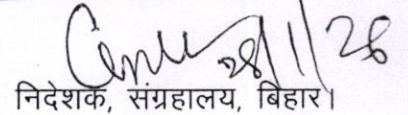 28/1/26
निदेशक, संग्रहालय, बिहार।